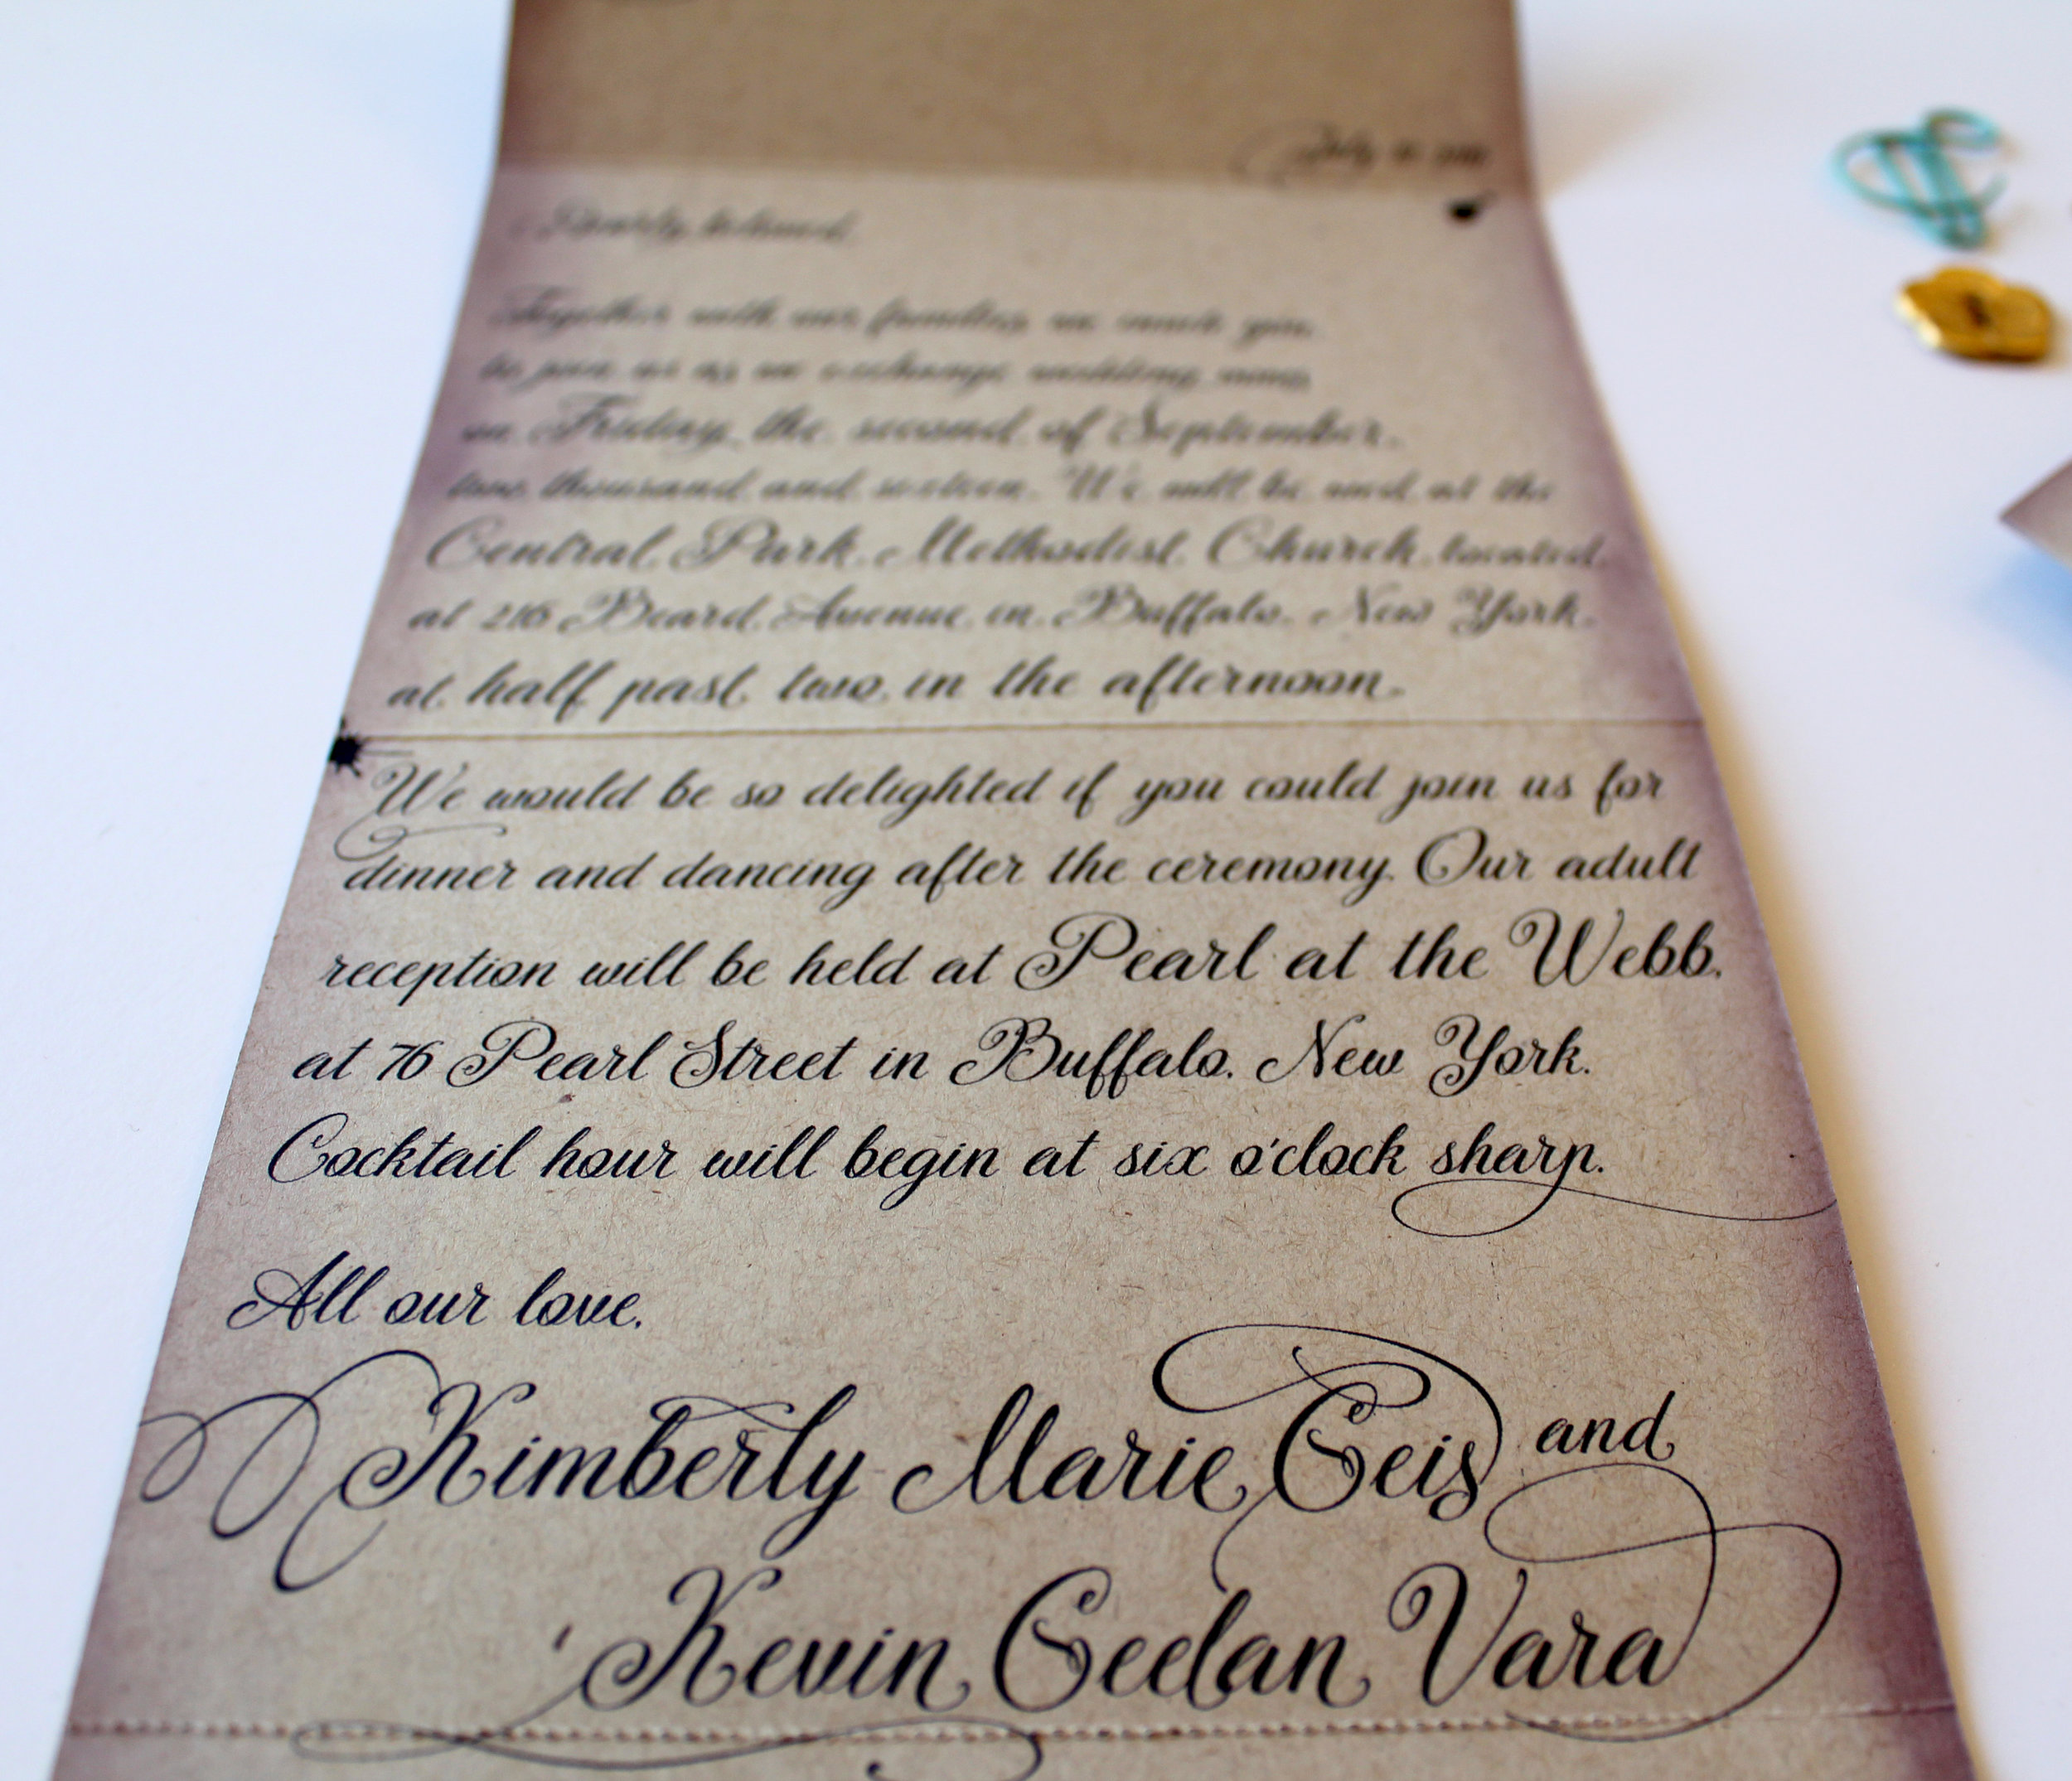 Dearly beloved,
Together with our families, we invite you
to join us as we exchange wedding vows
on Friday, the second of September,
two thousand and sixteen. We will be wed at the
Central Park Methodist Church, located
at 216 Beard Avenue in Buffalo, New York,
at half past two in the afternoon.
We would be so delighted if you could join us for
dinner and dancing after the ceremony. Our adult
reception will be held at Pearl at the Webb,
at 76 Pearl Street in Buffalo, New York.
Cocktail hour will begin at six o'clock sharp.
All our love,
Kimberly Marie Geis and
Kevin Geelan Vara